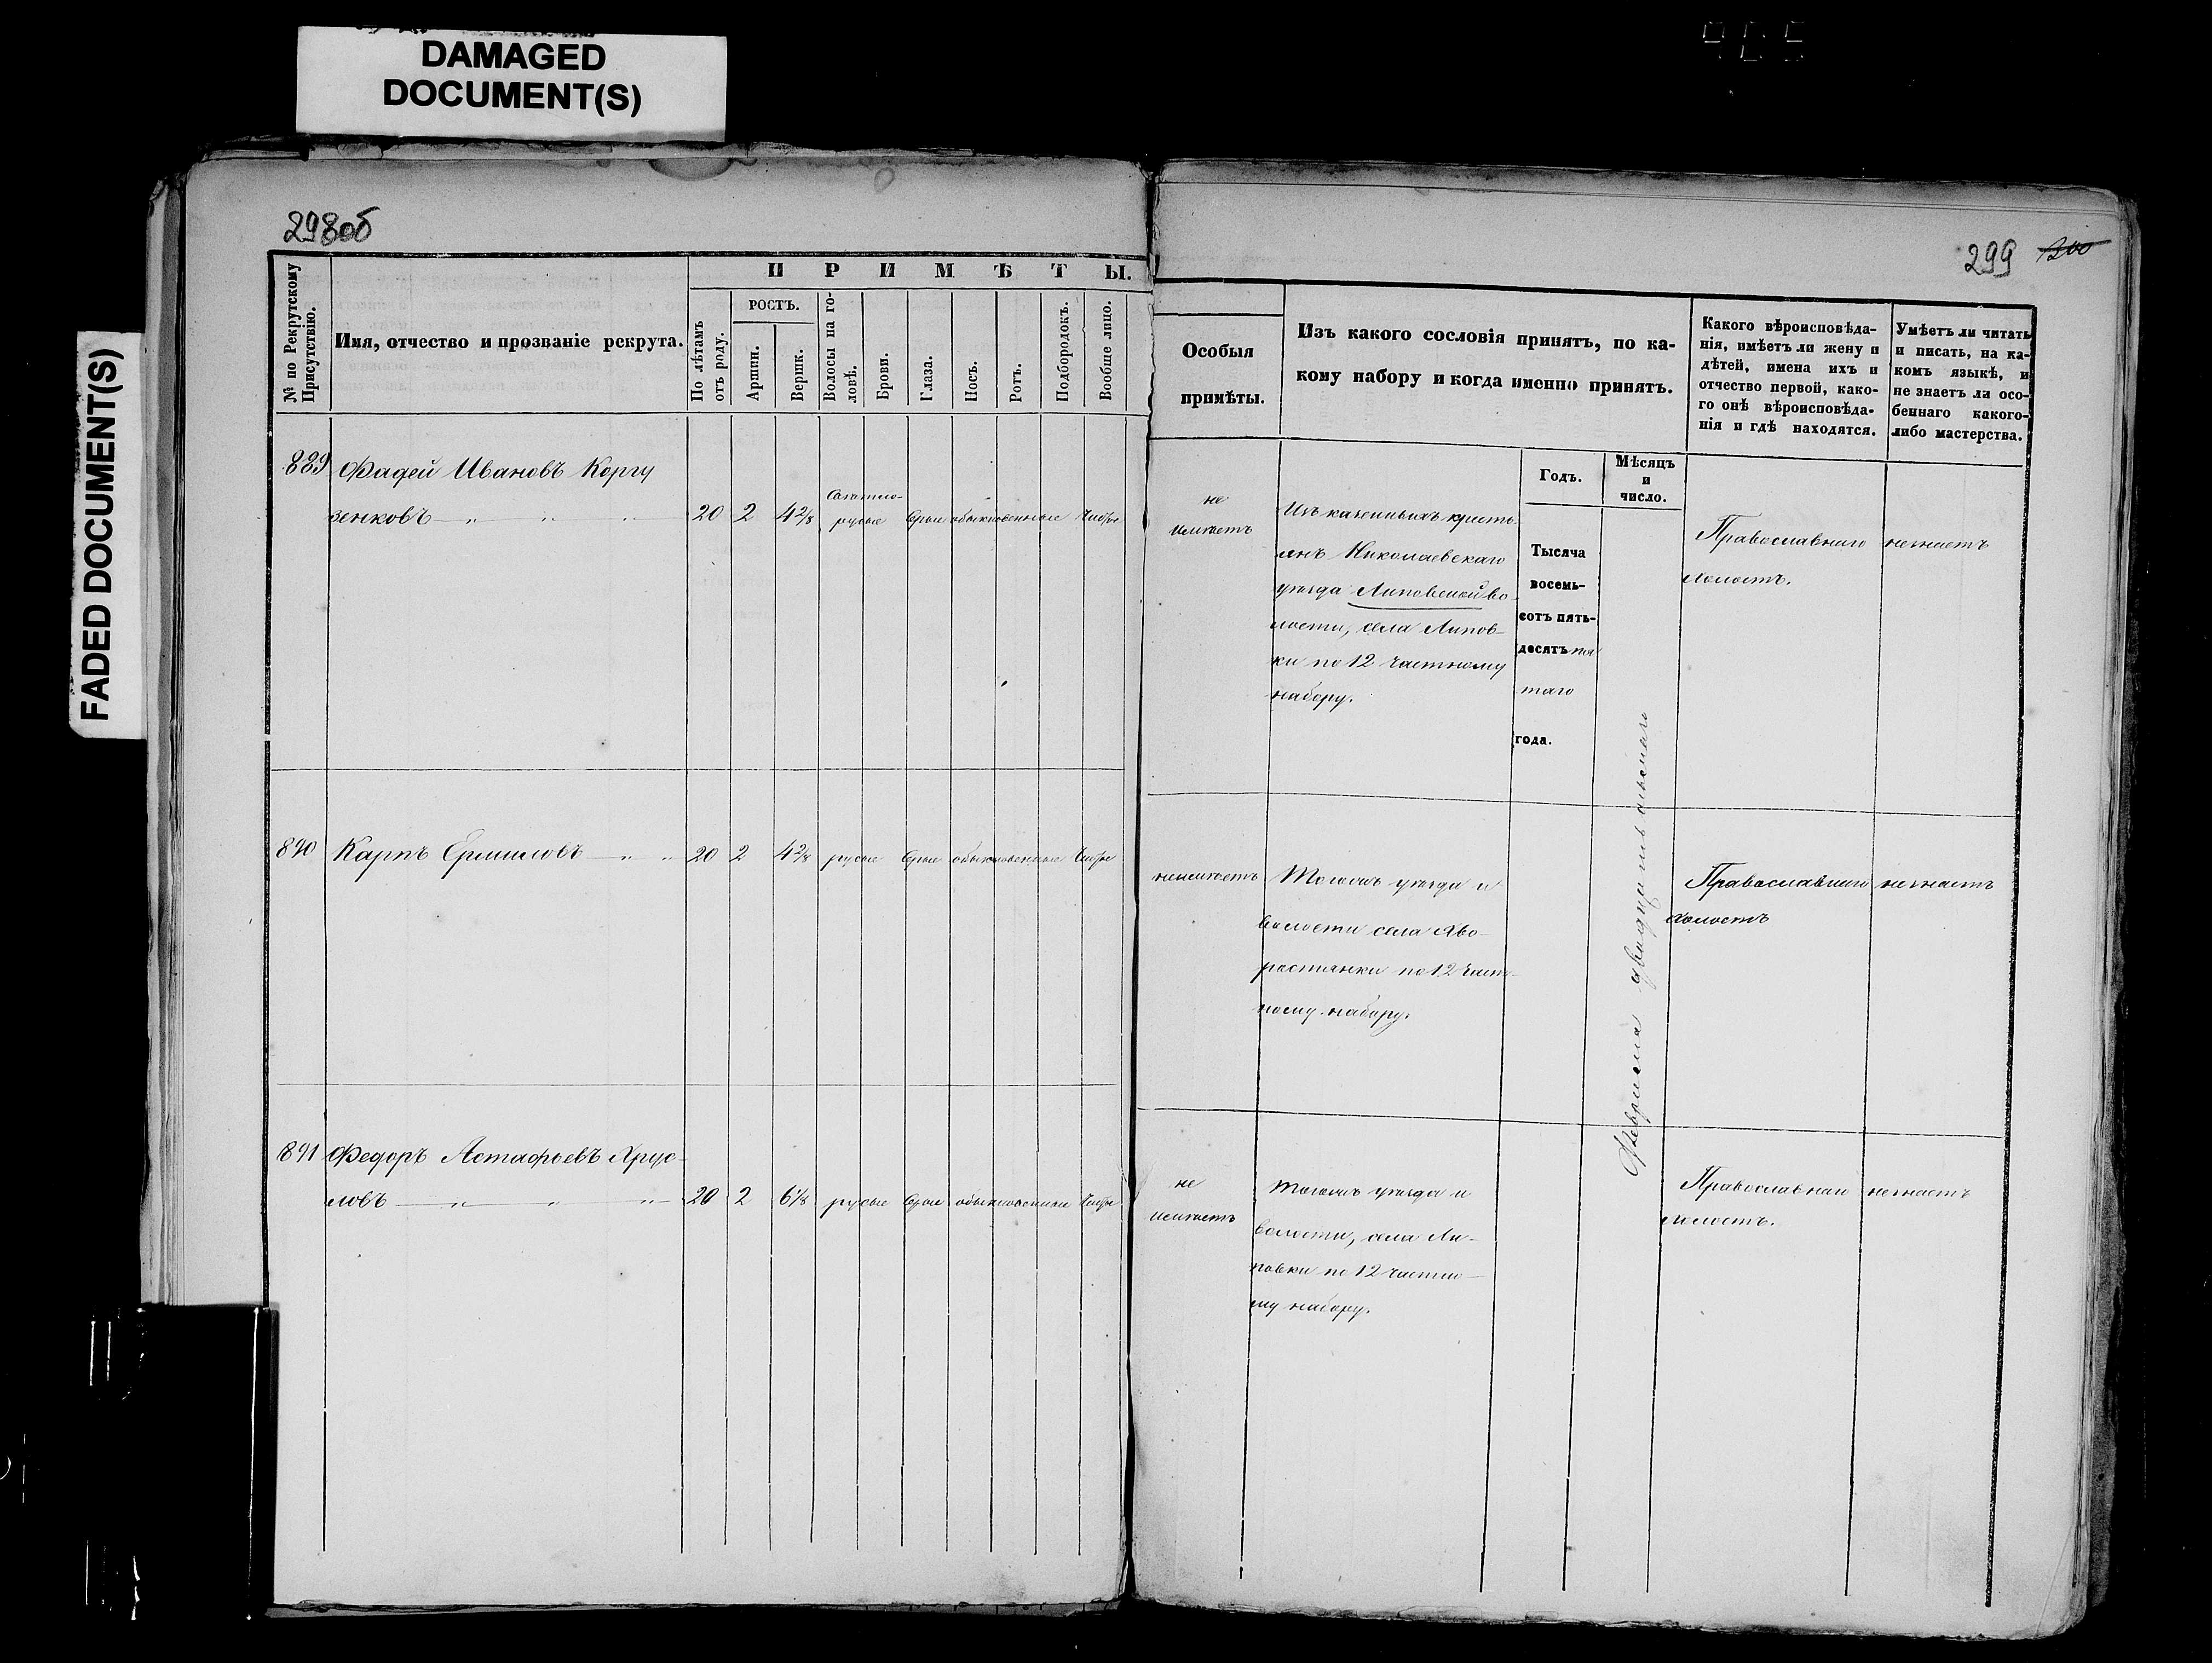 DAMAGED
DOCUMENT(S)
FADED DOCUMENT(S)
298об
№ по Рекрутскому
Присутствію.
Имя, отчество и прозваніе рекрута.
ПРИМѢТЫ.
По лѣтамъ
отъ роду.
РОСТЪ.
Аршин.
Вершк.
Волосы на го-
ловѣ.
Брови.
Глаза.
Носъ.
Ротъ.
Подбородокъ.
Вообще лицо.
889 Фадей Ивановъ Коргу
зенковъ 20 2 4 2/8 русые серые обыкновенные чистое
890 Карпъ Ермиловъ 20 2 4 2/8 русые серые обыкновенные чистое
891 Федоръ Астафьевъ Хрус-
ловъ 20 2 6 1/8 русые серые обыкновенные чистое
299 300
Особыя
примѣты.
Изъ какого сословія принятъ, по ка-
кому набору и когда именно принятъ.
Какого вѣроисповѣда-
нія, имѣетъ ли жену и
дѣтей, имена ихъ и
отчество первой, како-
го онѣ вѣроисповѣда-
нія и гдѣ находятся.
Умѣетъ ли читать
и писать, на ка-
комъ языкѣ, и
не знаетъ ли осо-
беннаго какого-
либо мастерства.
Годъ.
Мѣсяцъ
и
число.
не
имѣетъ
Изъ казенныхъ кресть-
янъ Николаевскаго
уѣзда Липовской во-
лости, села Липов-
ки по 12 частному
набору.
Тысяча
восемь-
сотъ пять-
десятъ пя
таго
года.
Февраля двадцать
Православнаго
холостъ.
незнаетъ
неимѣетъ
Тогожъ уѣзда и
волости села Яво-
ростянки по 12 част-
ному набору.
Православнаго
холостъ
незнаетъ
не
имѣетъ
Тогожъ уѣзда и
волости, села Ли-
повки по 12 частно-
му набору.
Православнаго
холостъ.
незнаетъ